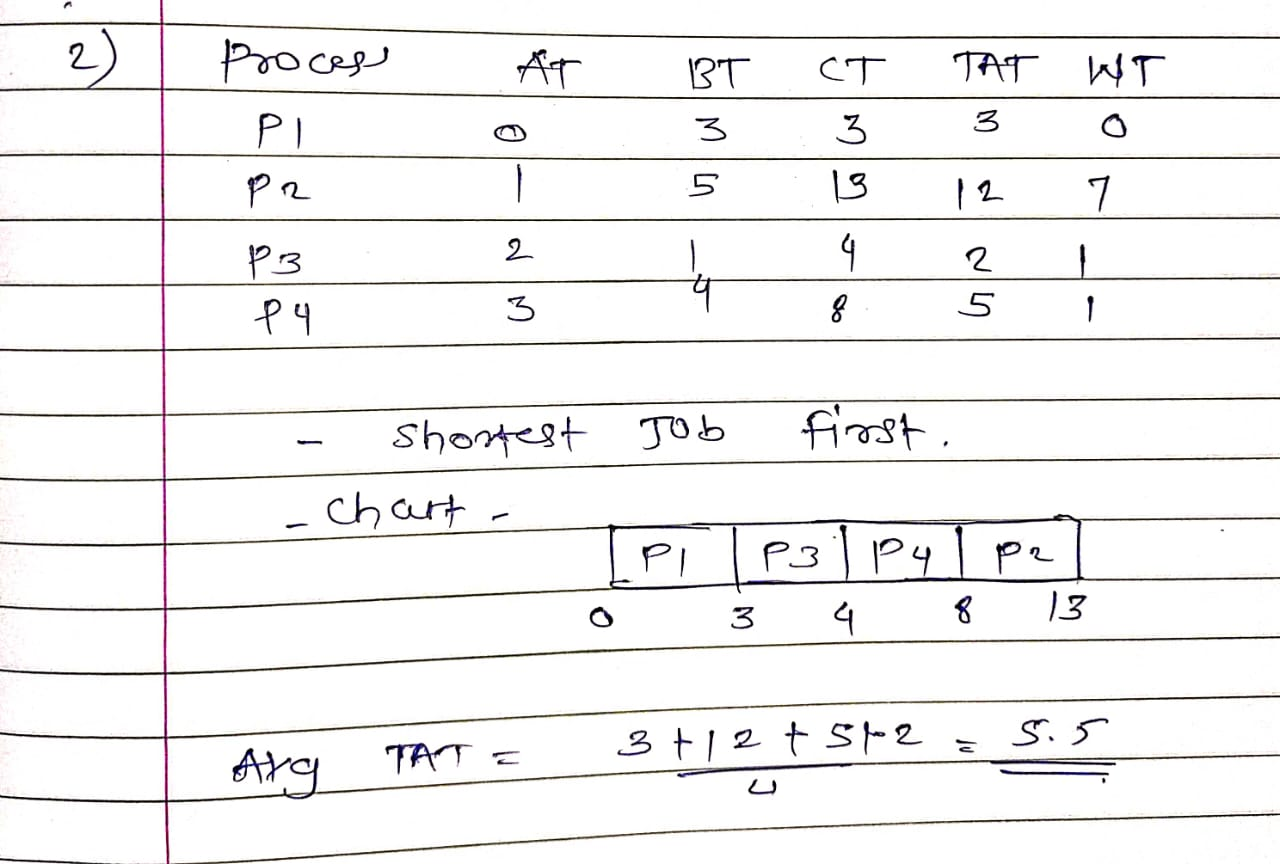 2) Process AT BT CT TAT WT
P1 0 3 3 3 0
P2 1 5 13 12 7
P3 2 1 4 2 1
P4 3 4 8 5 1
- Shortest Job first.
- Chart -
P1 P3 P4 P2
0 3 4 8 13
Avg TAT = 3+12+5+2 = 5.5
4